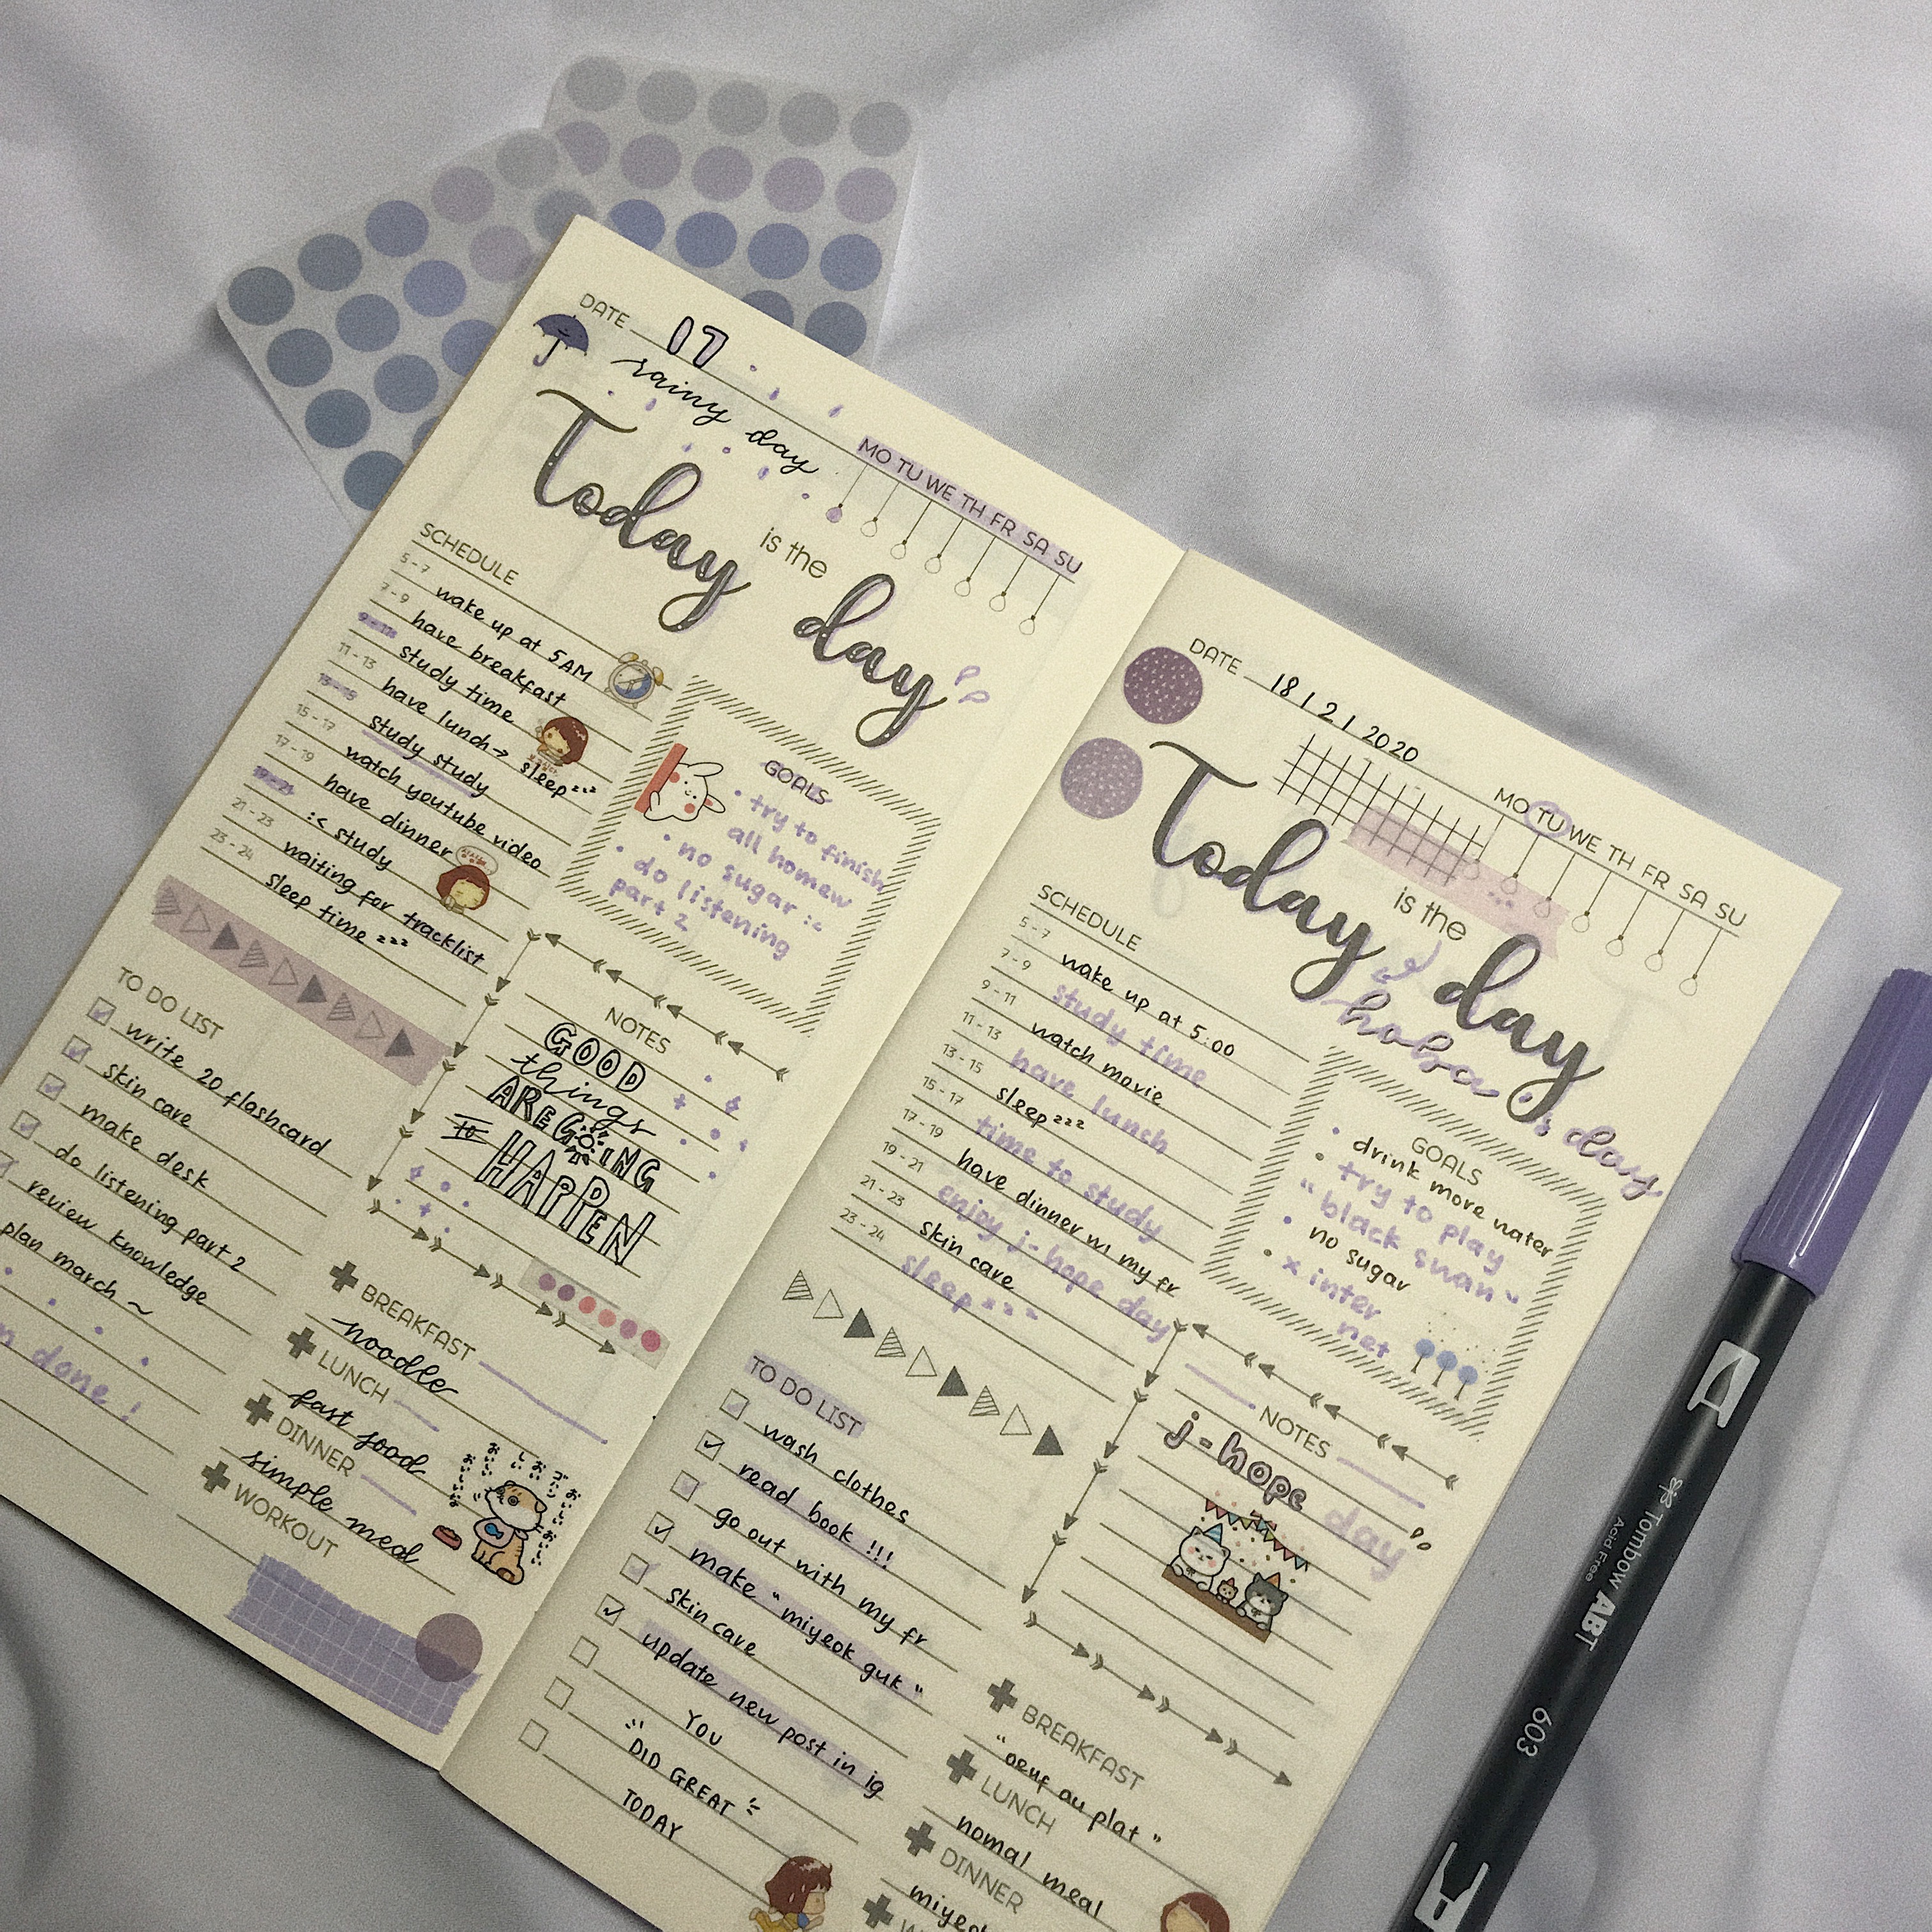 DATE 17
rainy day
MO TU WE TH FR SA SU
Today is the day
SCHEDULE
5 - 7 wake up at 5AM
7 - 9 have breakfast
9 - 11 study time
11 - 13 have lunch → sleep zzz
13 - 15 study study
15 - 17 watch youtube video
17 - 19 have dinner
19 - 21 :< study
21 - 23 waiting for tracklist
23 - 24 sleep time zzz
GOALS
• try to finish
all homew
• no sugar :<
• do listening
part 2
TO DO LIST
write 20 flashcard
skin care
make desk
do listening part 2
review knowledge
plan march ~
done !
NOTES
GOOD
things
ARE GOING
TO
HAPPEN
BREAKFAST
noodle
LUNCH
fast food
DINNER
simple meal
WORKOUT
DATE 18 / 2 / 2020
MO TU WE TH FR SA SU
Today is the day
hoba 's day
SCHEDULE
5 - 7 wake up at 5:00
7 - 9 study time
9 - 11 watch movie
11 - 13 have lunch
13 - 15 sleep zzz
15 - 17 time to study
17 - 19 have dinner w/ my fr
19 - 21 enjoy j-hope day
21 - 23 skin care
23 - 24 sleep zzz
GOALS
• drink more water
• try to play
"black swan"
• no sugar
• x inter
net
TO DO LIST
wash clothes
read book !!!
go out with my fr
make "miyeok guk"
skin care
update new post in ig
YOU
DID GREAT
TODAY
NOTES
j-hope day
BREAKFAST
"oeuf au plat"
LUNCH
nomal meal
DINNER
Tombow ABT
Acid Free
603